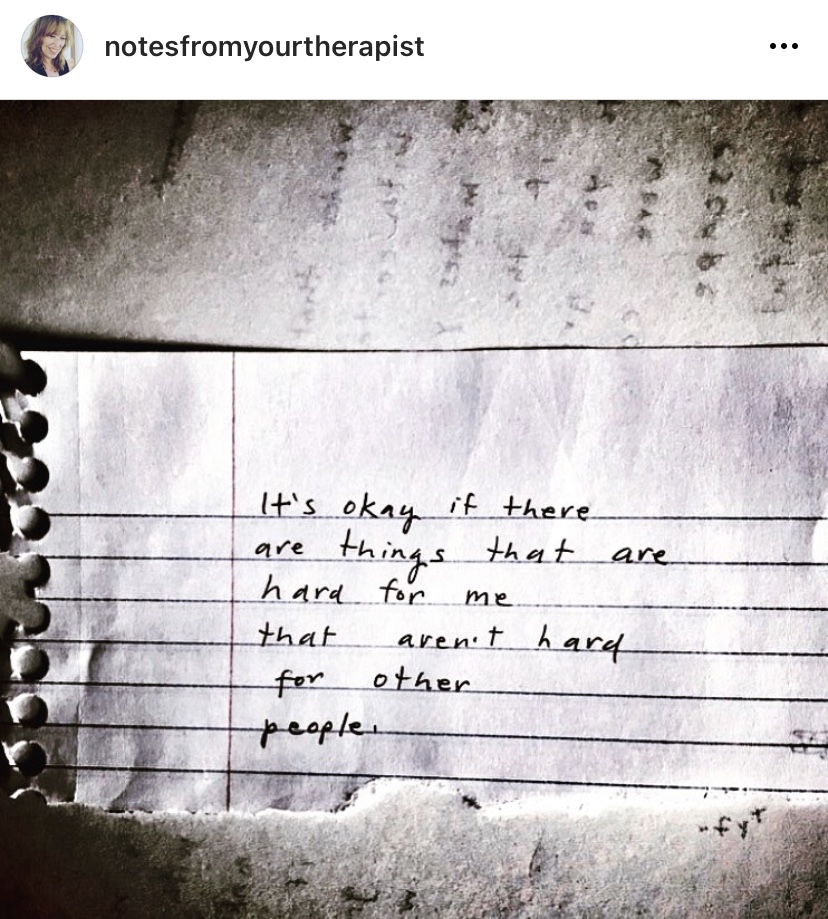 notesfromyourtherapist
It's okay if there
are things that are
hard for me
that aren't hard
for other
people.